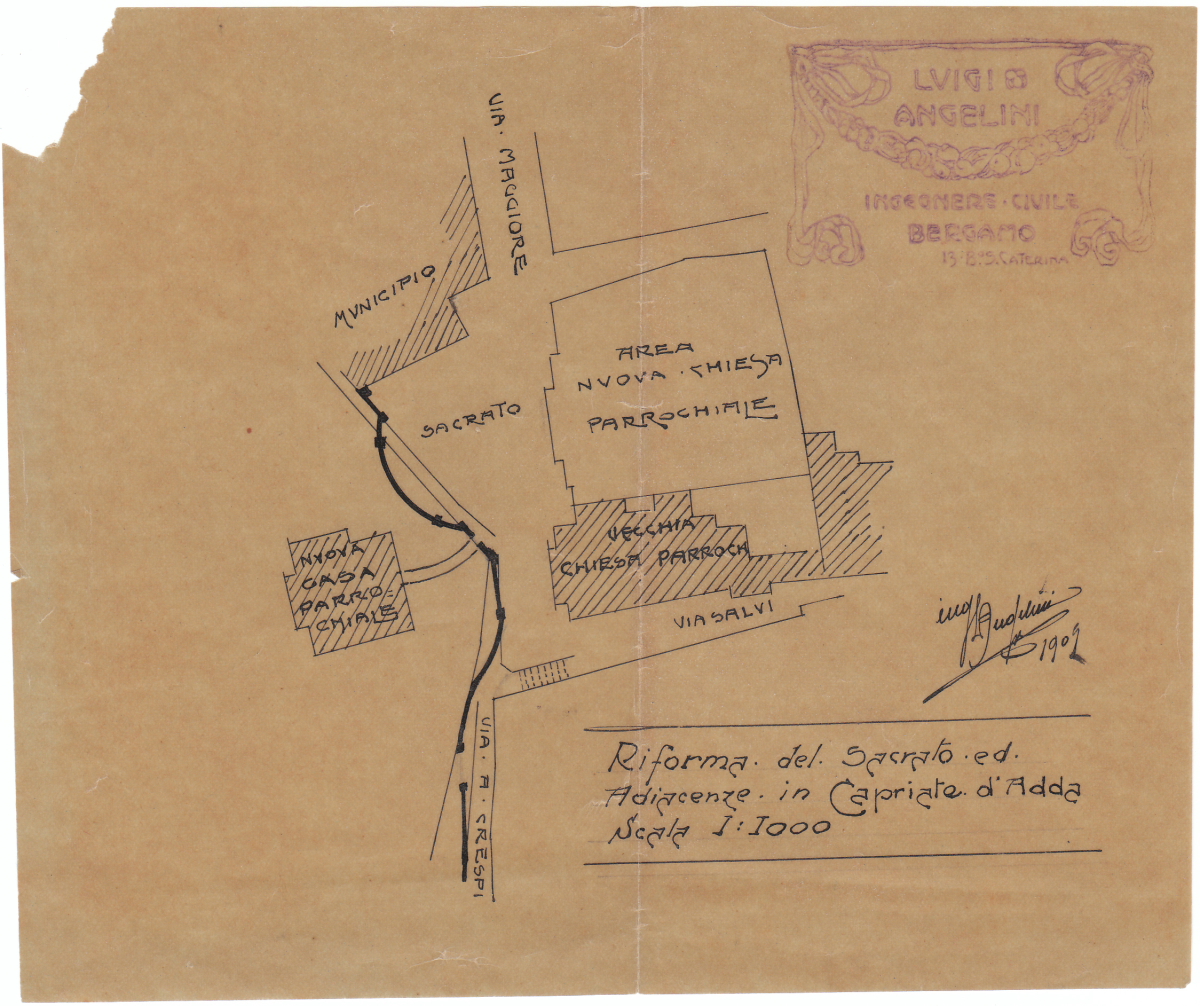 LVIGI
ANGELINI
INGEGNERE · CIVILE
BERGAMO
13·B.S. CATERINA
VIA · MAGGIORE
MVNICIPIO
SACRATO
AREA
NVOVA · CHIESA
PARROCHIALE
VECCHIA
CHIESA PARROCH
VIA SALVI
NVOVA
CASA
PARRO=
CHIALE
VIA · A · CRESPI
ing Angelini
1909
Riforma · del · Sacrato · ed ·
Adiacenze · in Capriate d'Adda
Scala 1:1000